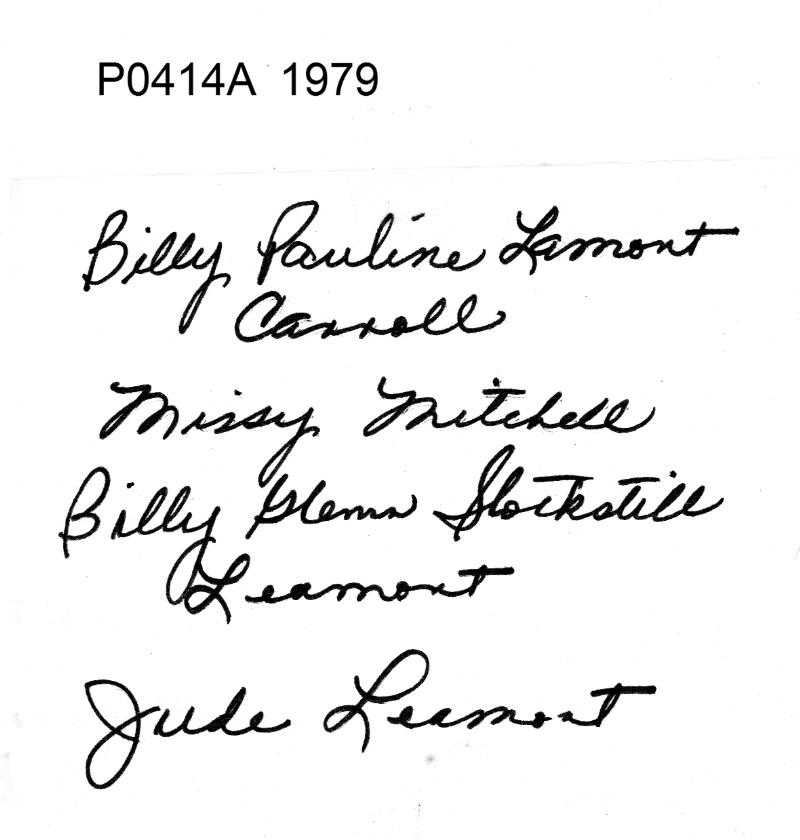 P0414A 1979
Billy Pauline Lamont
Carroll
Missy Mitchell
Billy Glenn Stockstill
Leamont
Jude Leamont